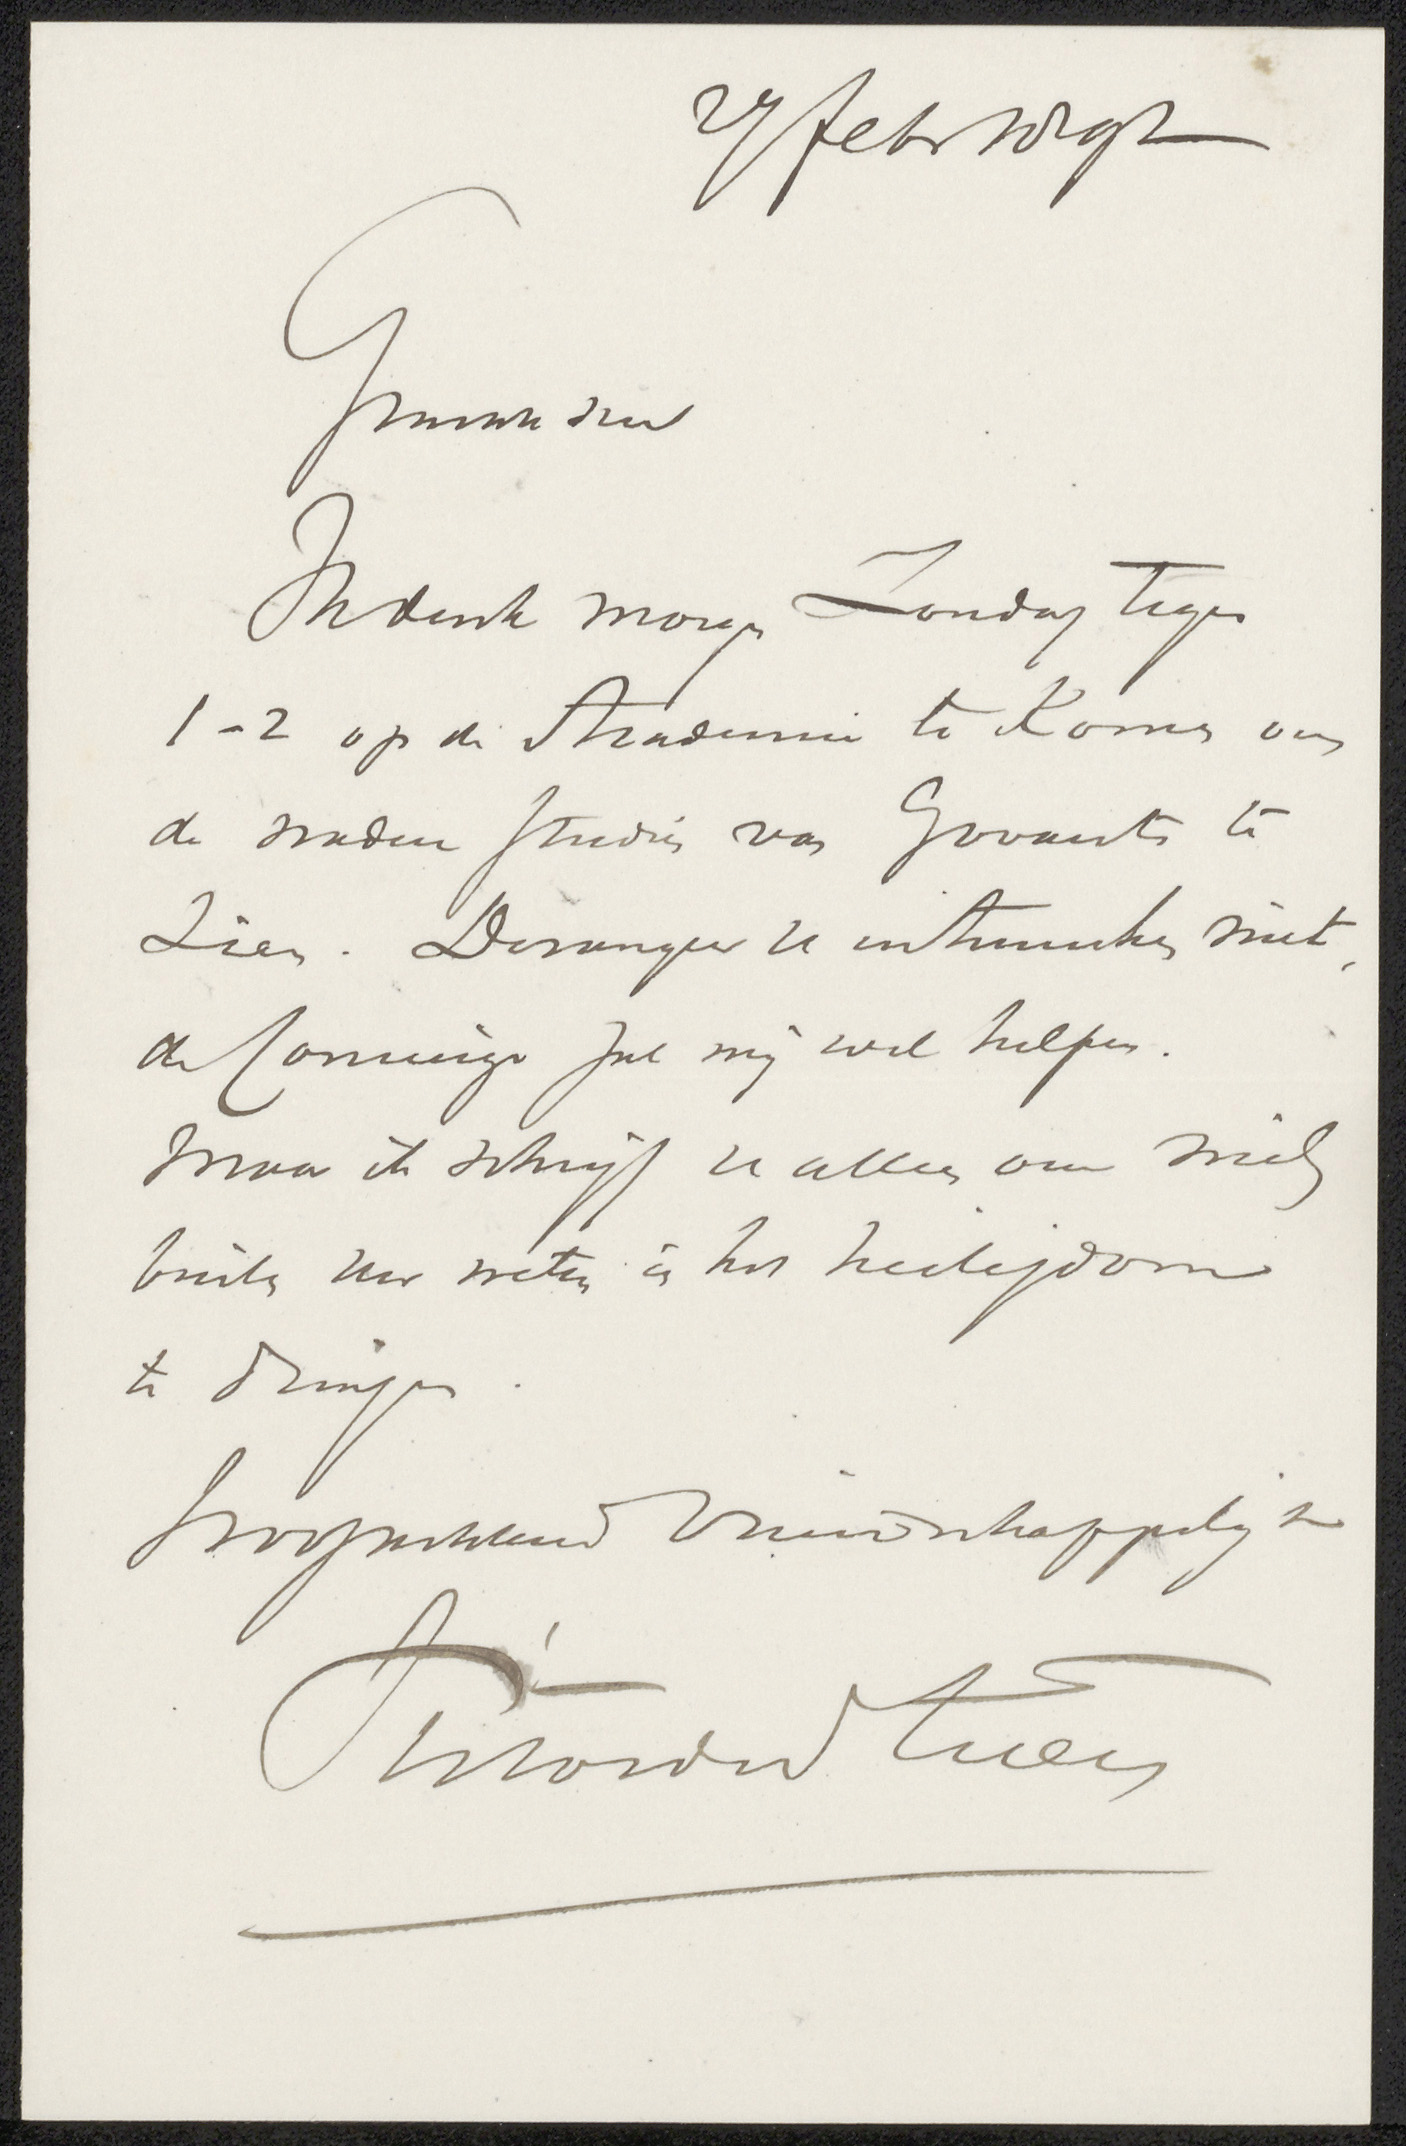 27 febr 1892
Amice
Ik denk morgen Zondag tegen
1-2 op de Academie te komen om
de studies van Govaerts te
zien. Derangeer u intusschen niet,
de Concierge zal mij wel helpen.
Maar ik schrijf u alleen om niet
buiten uw weten in het heiligdom
te dringen.
Hoogachtend Vriendschappelijk